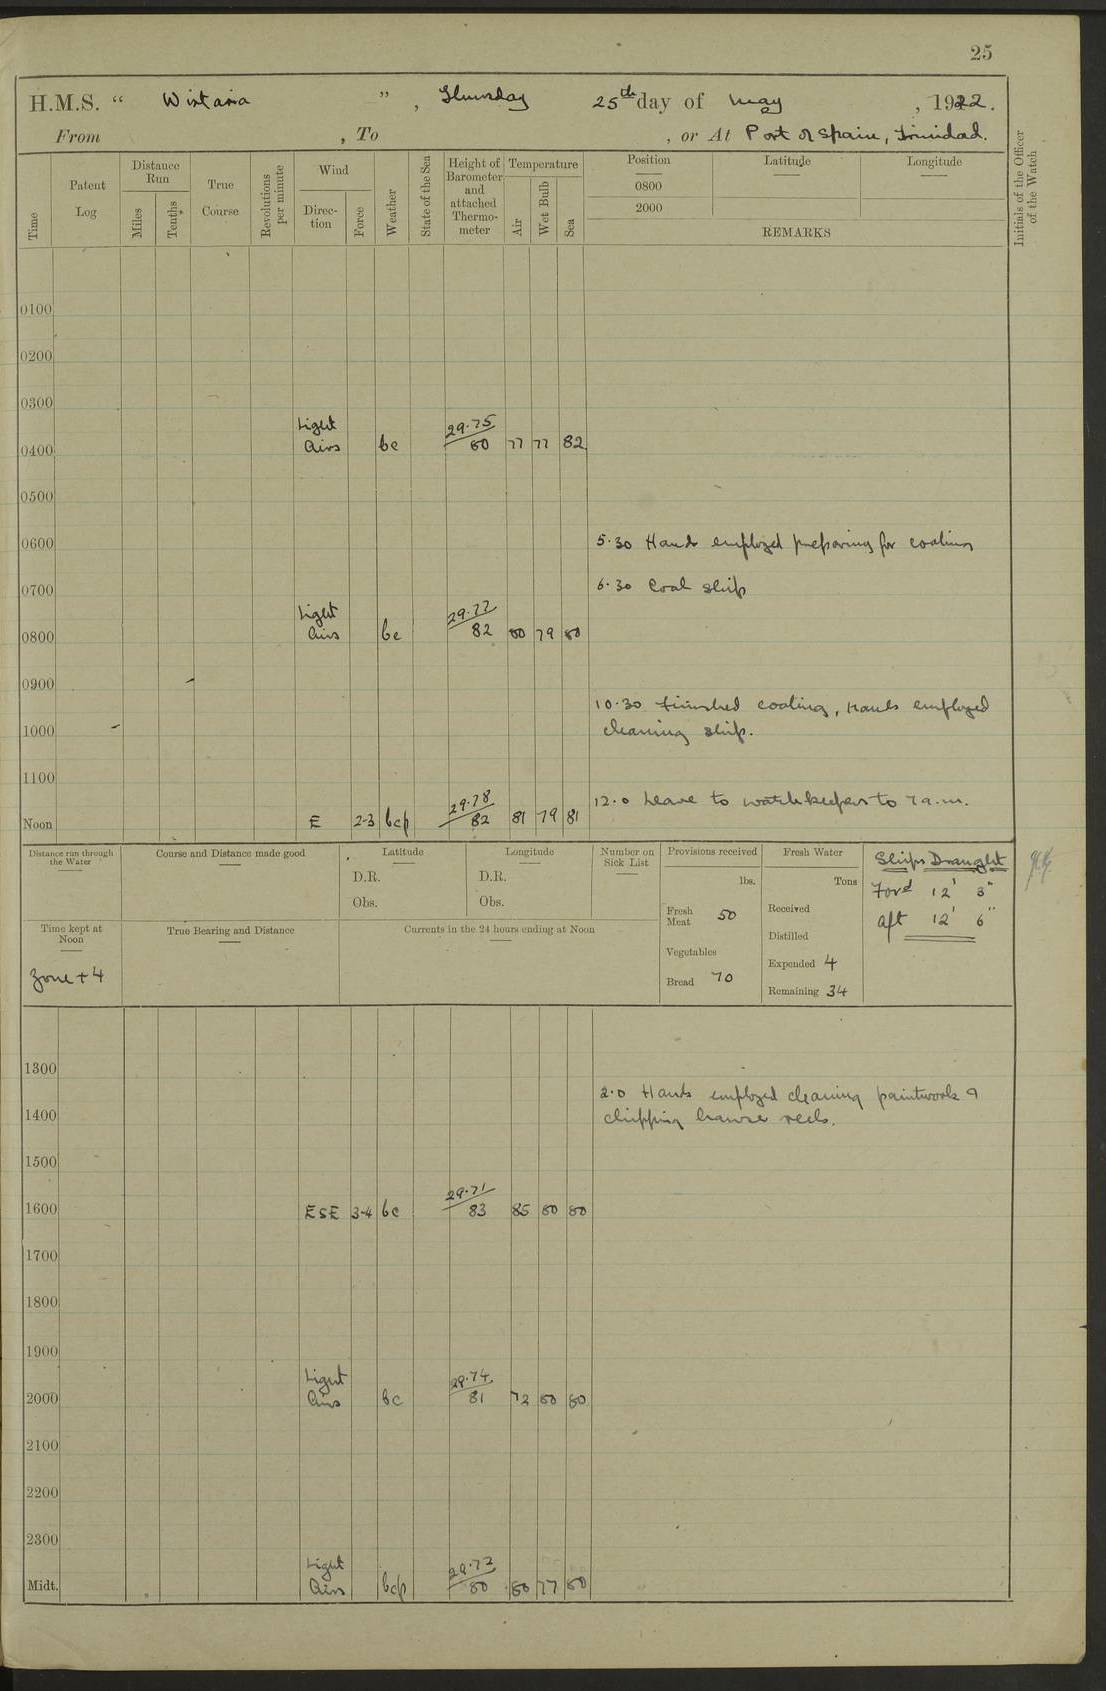 25
H.M.S. “ Wistaria ” , Thursday 25th day of May , 1922.
From , To , or At Port of Spain, Trinidad.
Time
Patent Log
Distance Run
Miles
Tenths
True Course
Revolutions per minute
Wind
Direc-tion
Force
Weather
State of the Sea
Height of Barometer and attached Thermo-meter
Temperature
Air
Wet Bulb
Sea
Position
Latitude
Longitude
0800
2000
REMARKS
Initials of the Officer of the Watch
0100
0200
0300
Light 29.75
0400 Airs bc 80 77 77 82
0500
0600 5.30 Hands employed preparing for coaling
0700 6.30 Coal ship
Light 29.77
0800 Airs bc 82 80 79 80
0900
10.30 Finished coaling, Hands employed
1000 cleaning ship.
1100
29.78 12.0 Leave to watchkeepers to 7 a.m.
Noon E 2-3 bcp 82 81 79 81
Distance run through the Water
Course and Distance made good
Latitude
D.R.
Obs.
Longitude
D.R.
Obs.
Number on Sick List
Provisions received
lbs.
Fresh Meat 50
Vegetables
Bread 70
Fresh Water
Tons
Received
Distilled
Expended 4
Remaining 34
Ships Draught
Ford 12' 3"
Aft 12' 6"
Time kept at Noon
Zone + 4
True Bearing and Distance
Currents in the 24 hours ending at Noon
1300
2.0 Hands employed cleaning paintwork &
1400 chipping hawse reels.
1500
29.71
1600 ESE 3-4 bc 83 85 80 80
1700
1800
1900
Light 29.74
2000 Airs bc 81 72 80 80
2100
2200
2300
Light 29.72
Midt. Airs bcp 80 80 77 80